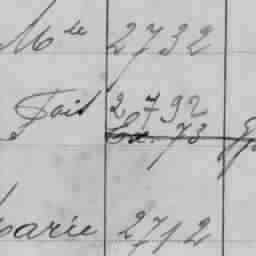 Mde 2732
Fait 2792
73
Marie 2712